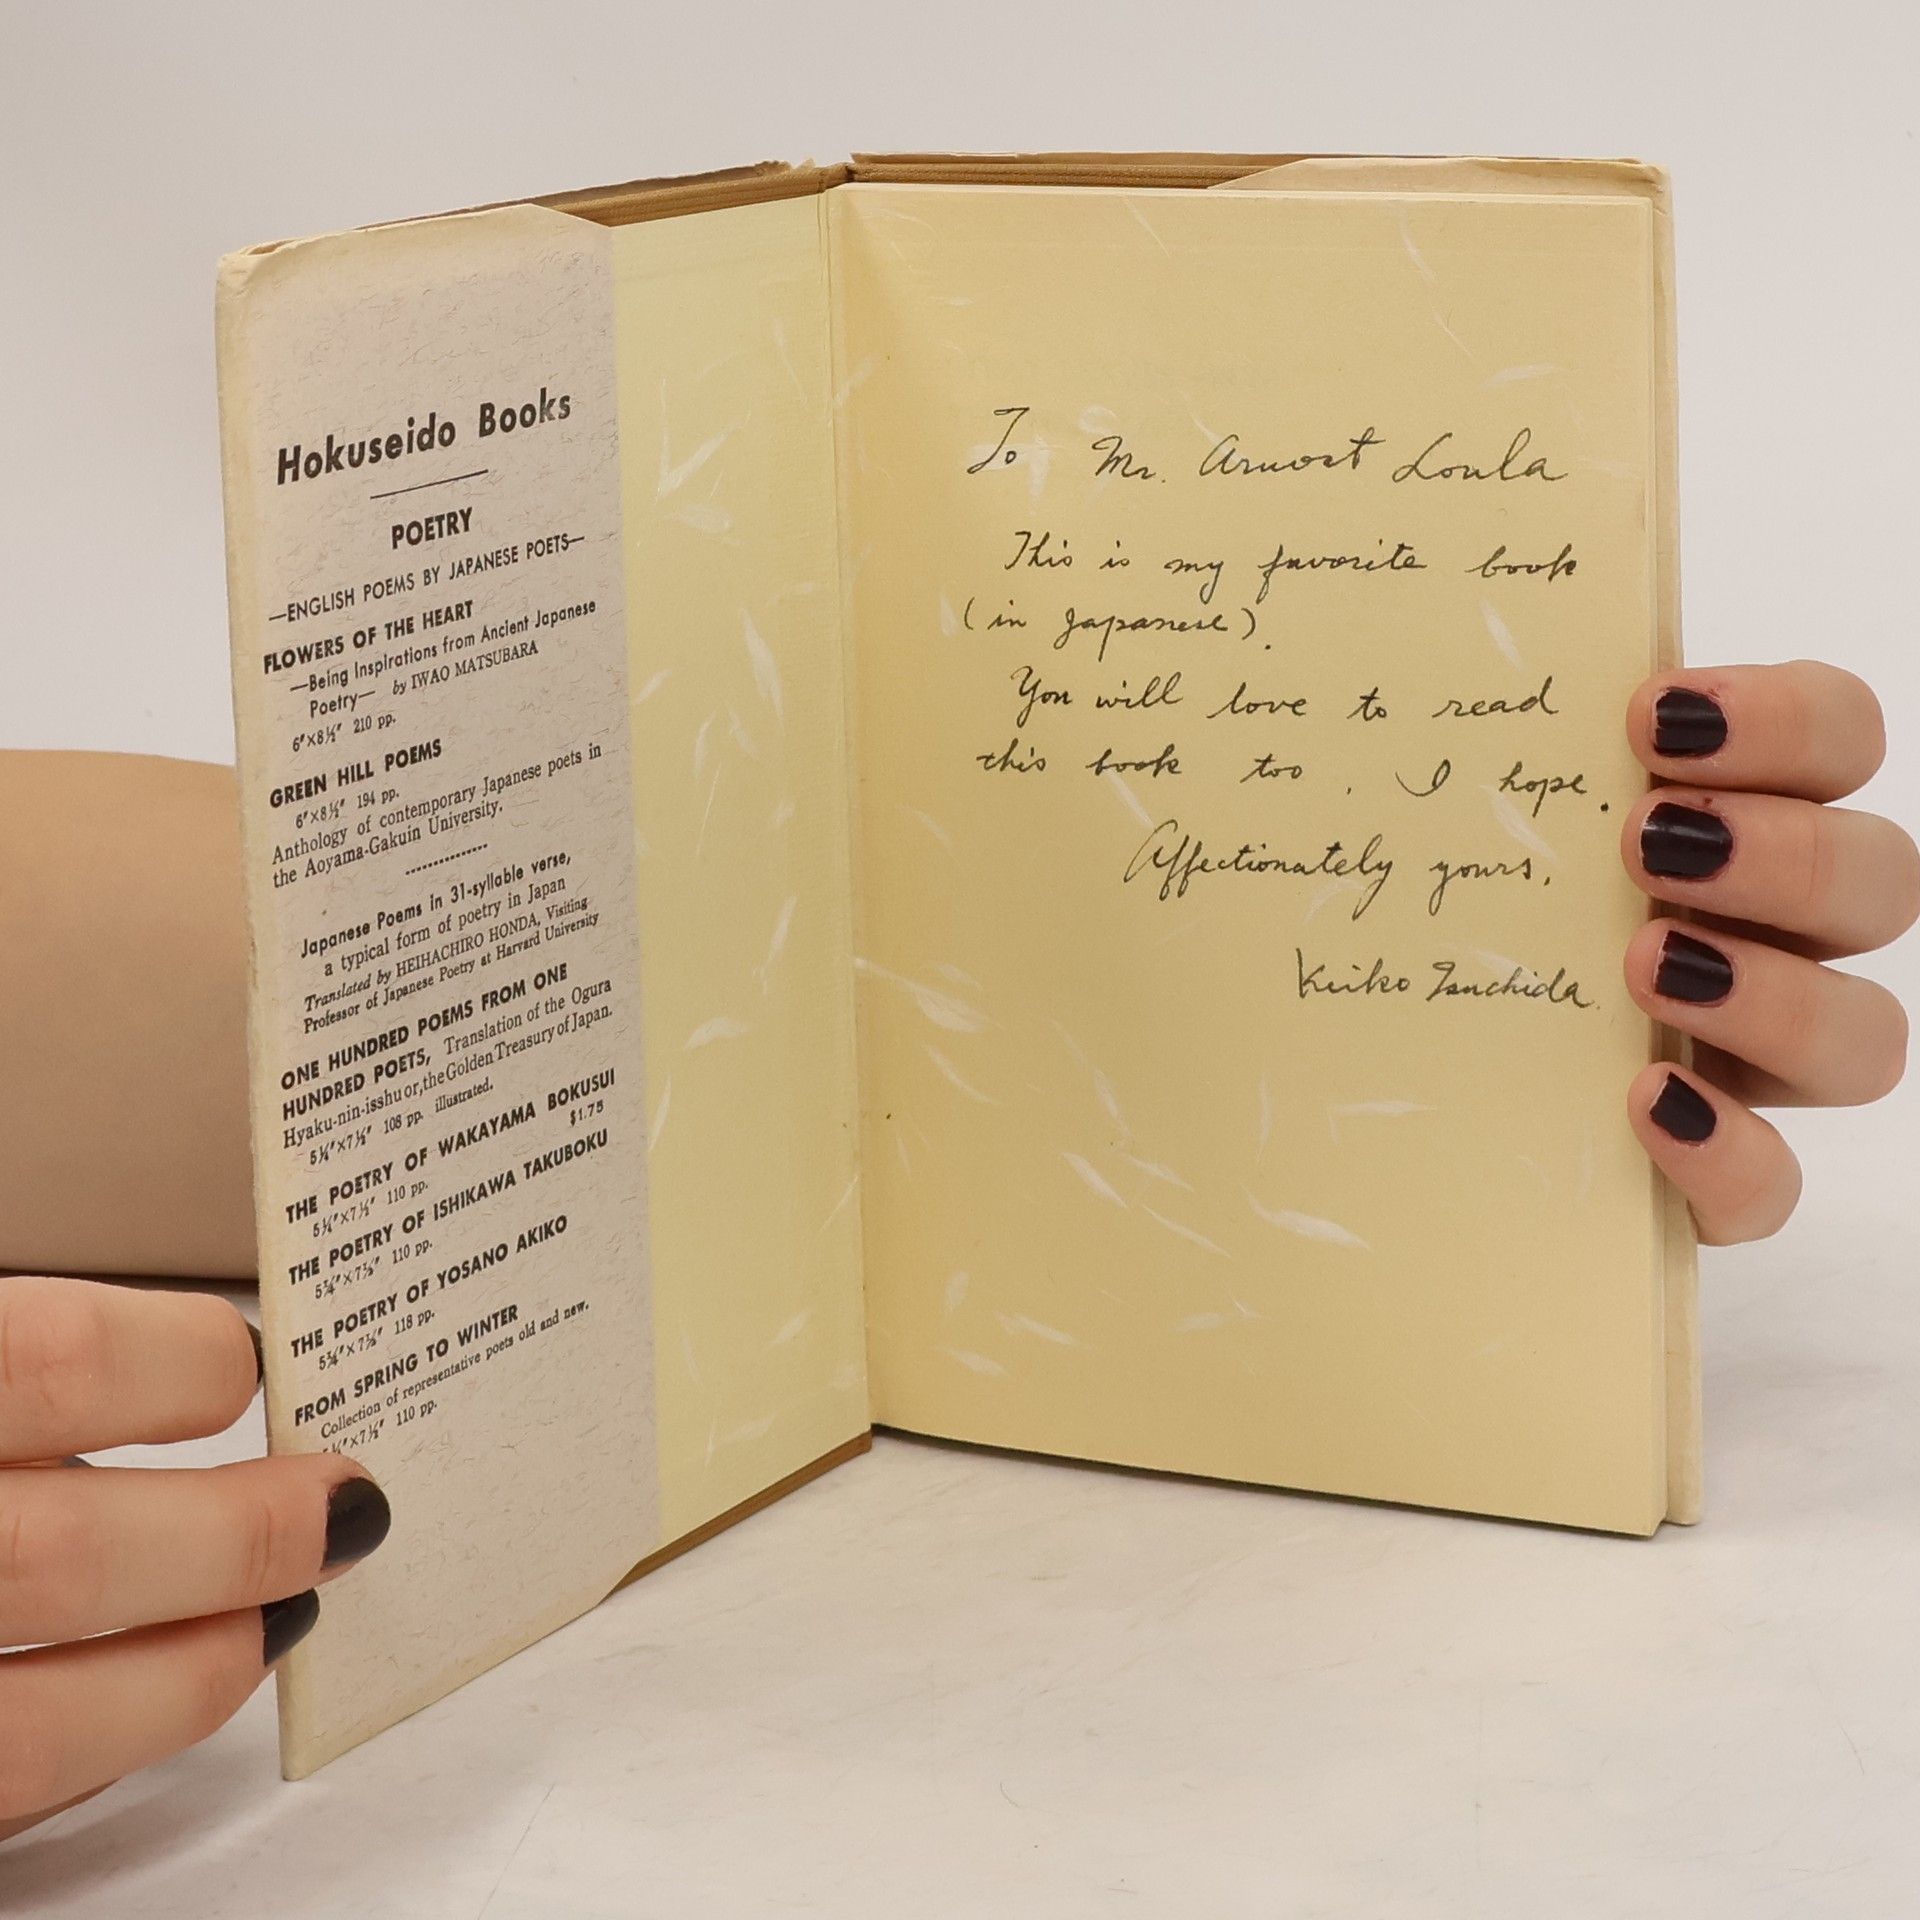 Hokuseido Books
POETRY
—ENGLISH POEMS BY JAPANESE POETS—
FLOWERS OF THE HEART
—Being Inspirations from Ancient Japanese
Poetry— by IWAO MATSUBARA
6"×8½" 210 pp.
GREEN HILL POEMS
6"×8½" 194 pp.
Anthology of contemporary Japanese poets in
the Aoyama-Gakuin University.
Japanese Poems in 31-syllable verse,
a typical form of poetry in Japan
Translated by HEIHACHIRO HONDA, Visiting
Professor of Japanese Poetry at Harvard University
ONE HUNDRED POEMS FROM ONE
HUNDRED POETS, Translation of the Ogura
Hyaku-nin-isshu or, the Golden Treasury of Japan.
5¼"×7½" 108 pp. illustrated.
THE POETRY OF WAKAYAMA BOKUSUI
5¼"×7½" 110 pp. $1.75
THE POETRY OF ISHIKAWA TAKUBOKU
5¼"×7½" 110 pp.
THE POETRY OF YOSANO AKIKO
5¼"×7½" 118 pp.
FROM SPRING TO WINTER
Collection of representative poets old and new.
¼"×7½" 110 pp.
To Mr. Arnost Loula
This is my favorite book
(in Japanese).
You will love to read
this book too, I hope.
Affectionately yours,
Keiko Tsuchida.